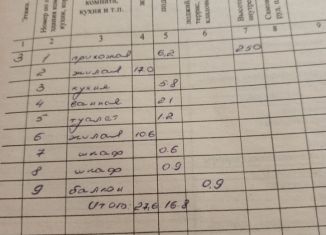 Этаж.
комната,
кухня и т.п.
1 2 3 4 5 6 7 8
3 1 прихожая 6,2 250
2 жилая 17.0
3 кухня 5.8
4 ванная 2.1
5 туалет 1.2
6 жилая 10.6
7 шкаф 0.6
8 шкаф 0.9
9 балкон 0,9
Итого: 27,6 16.8